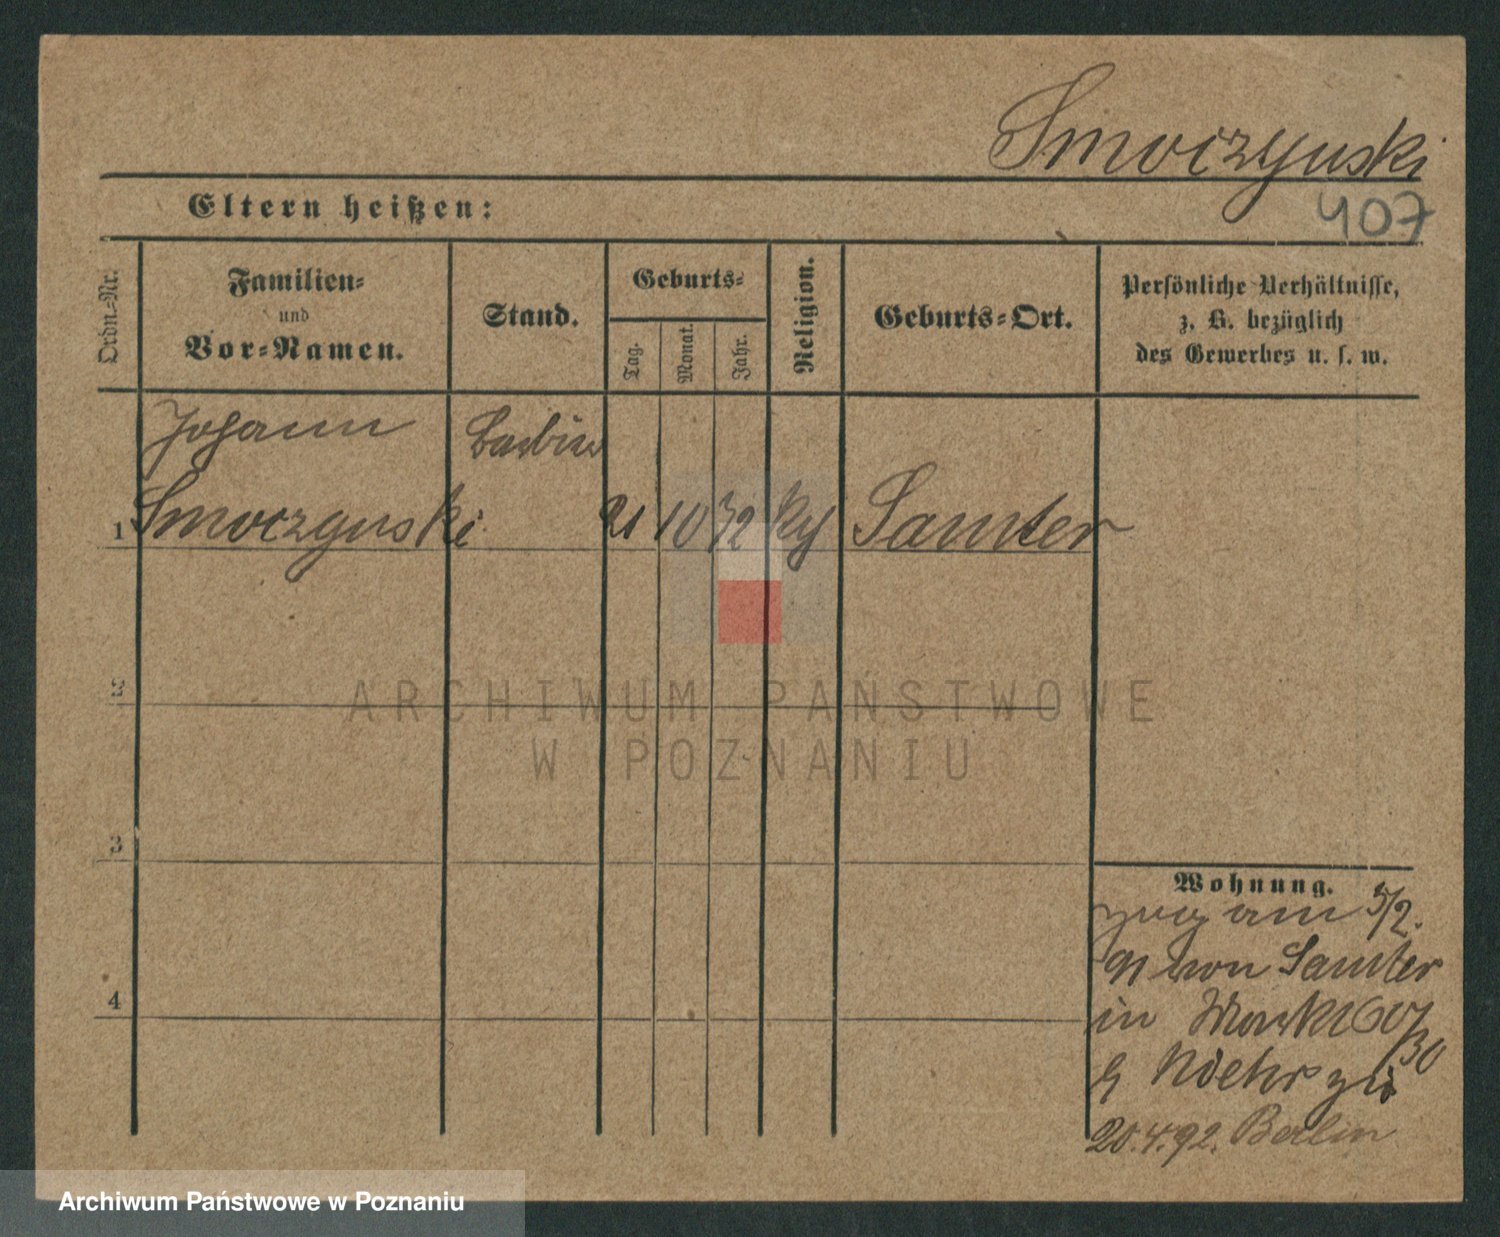 Smoczynski
407
Eltern heißen:
Ordn.-Nr.
Familien-
und
Vor-Namen.
Stand.
Geburts-
Tag.
Monat.
Jahr.
Religion.
Geburts-Ort.
Persönliche Verhältnisse,
z. B. bezüglich
des Gewerbes u. s. w.
Johann
Barbier
1 Smoczynski 21 10 72 Samter
2
ARCHIWUM PAŃSTWOWE
W POZNANIU
3
Wohnung.
zug am 5/2.
91 von Samter
in Markt 60/
30
20.4.92. Berlin
4
Archiwum Państwowe w Poznaniu